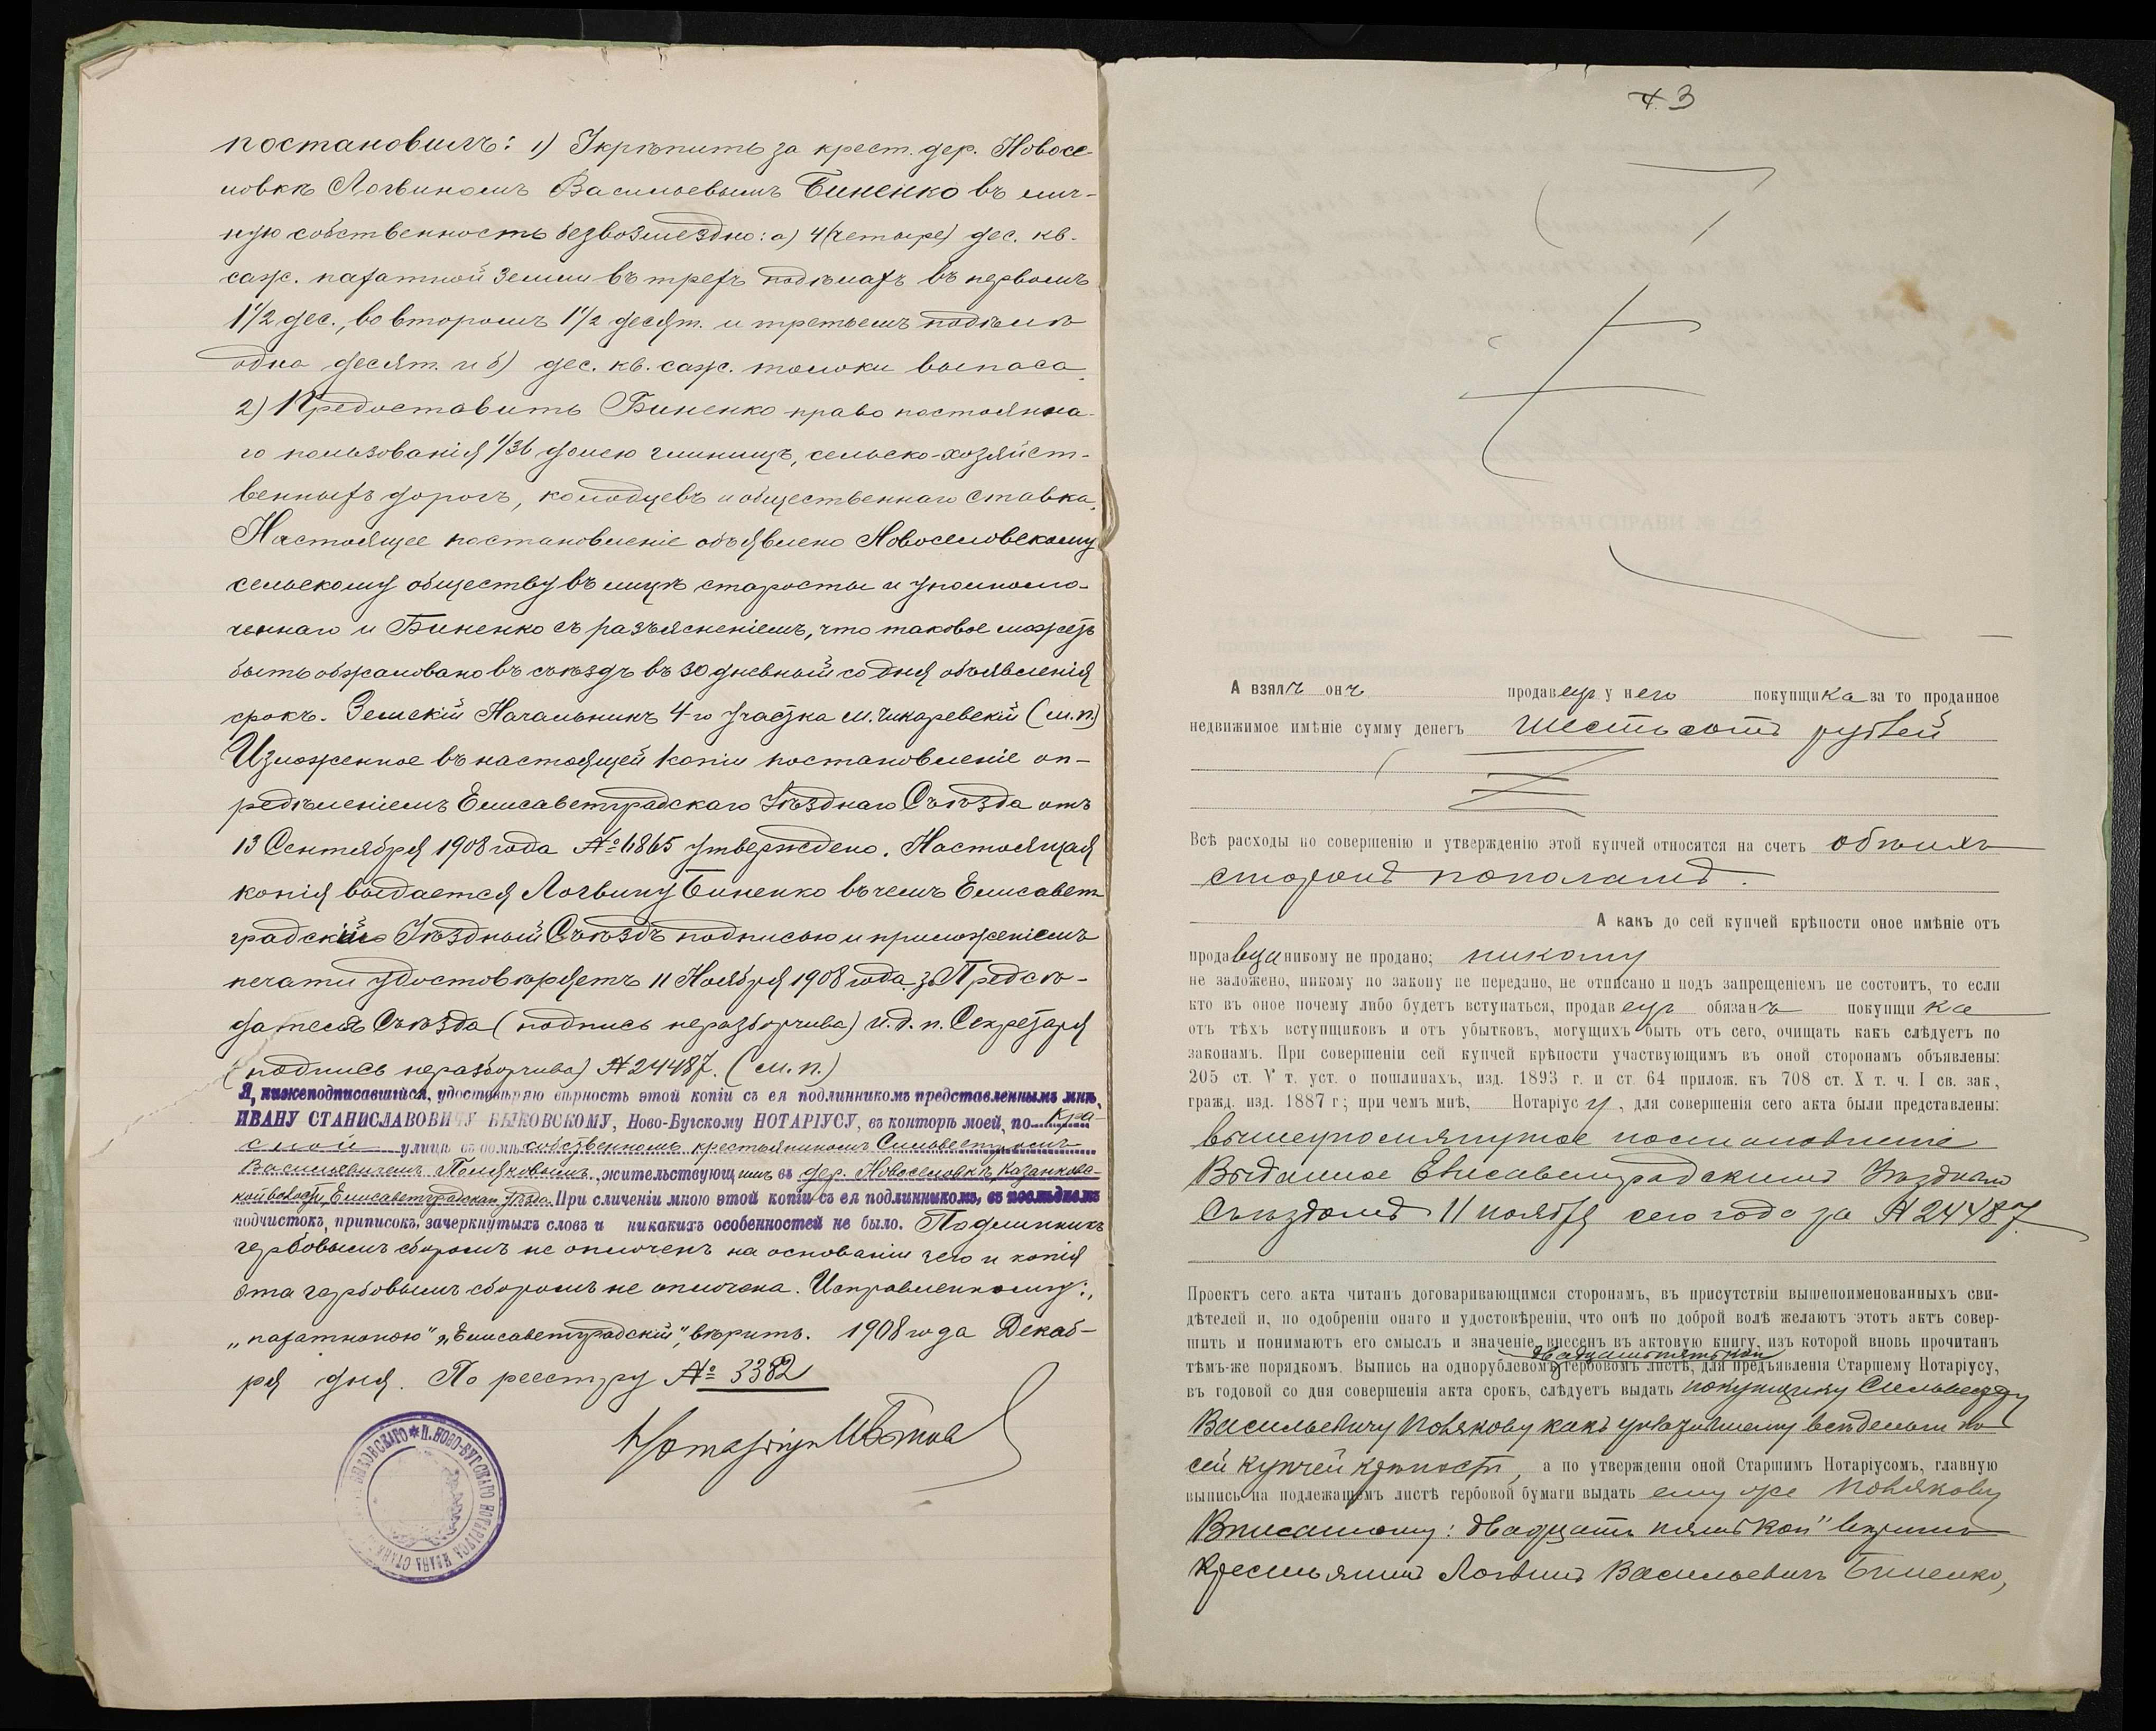 постановилъ: 1) Укрѣпить за крест. дер. Новосе-
ловкѣ Логвиномъ Васильевымъ Биненко въ лич-
ную собственность безвозмездно: а) 4 (четыре) дес. кв.
саж. пахатной земли въ трехъ подѣлахъ въ первомъ
1 1/2 дес., во второмъ 1 1/2 десят. и третьемъ подѣлѣ
одна десят. и б) дес. кв. саж. толоки выпаса.
2) Предоставить Биненко право постоянна-
го пользованія 1/36 долею глинищъ, сельско-хозяйст-
венныхъ дорогъ, колодцевъ и общественнаго ставка.
Настоящее постановленіе объявлено Новоселовскому
сельскому обществу въ лицѣ старосты и уполномо-
ченнаго и Биненко съ разъясненіемъ, что таковое можетъ
быть обжаловано въ съѣздъ въ 30 дневный со дня объявленія
срокъ. Земскій Начальникъ 4-го участка М. Чикаревскій (м.п.)
Изложенное въ настоящей копіи постановленіе оп-
редѣленіемъ Елисаветградскаго Уѣзднаго Съѣзда отъ
13 Сентября 1908 года № 6865 утверждено. Настоящая
копія выдается Логвину Биненко въ чемъ Елисавет-
градскій Уѣздный Съѣздъ подписью и приложеніемъ
печати удостовѣряетъ 11 Ноября 1908 года. за Предсѣ-
дателя Съѣзда (подпись неразборчива) и.д.п. Секретаря
(подпись неразборчива) № 24487. (м.п.)
Я, нижеподписавшійся, удостовѣряю вѣрность этой копіи съ ея подлинникомъ представленнымъ мнѣ,
ИВАНУ СТАНИСЛАВОВИЧУ БЫКОВСКОМУ, Ново-Бугскому НОТАРІУСУ, въ конторѣ моей, по Кра-
сной улицѣ въ домѣ собственномъ крестьяниномъ Сильвестромъ
Васильевичемъ Поляковымъ, жительствующимъ въ дер. Новоселовкѣ, Казанковс-
кой волости, Елисаветградскаго уѣзда. При сличеніи мною этой копіи съ ея подлинникомъ, въ послѣднемъ
подчистокъ, приписокъ, зачеркнутыхъ словъ и никакихъ особенностей не было. Подлинникъ
гербовымъ сборомъ не оплоченъ на основаніи чего и копія
эта гербовымъ сборомъ не оплочена. Исправленному:
„пахатною" „Елисаветградскій", вѣрить. 1908 года Декаб-
ря дня. По реестру № 3382
Нотаріусъ
П. НОВО-БУГСКАГО НОТАРІУСА ИВАНА СТАНИ БЫКОВСКАГО
3
А взялъ онъ продавецъ у него покупщика за то проданное
недвижимое имѣніе сумму денегъ шестьсотъ рублей
Всѣ расходы по совершенію и утвержденію этой купчей относятся на счетъ обѣихъ
сторонъ пополамъ.
А какъ до сей купчей крѣпости оное имѣніе отъ
продавца никому не продано; никому
не заложено, никому по закону не передано, не отписано и подъ запрещеніемъ не состоитъ, то если
кто въ оное почему либо будетъ вступаться, продавецъ обязанъ покупщика
отъ тѣхъ вступщиковъ и отъ убытковъ, могущихъ быть отъ сего, очищать какъ слѣдуетъ по
законамъ. При совершеніи сей купчей крѣпости участвующимъ въ оной сторонамъ объявлены:
205 ст. V т. уст. о пошлинахъ, изд. 1893 г. и ст. 64 прилож. къ 708 ст. X т. ч. I св. зак,
гражд. изд. 1887 г; при чемъ мнѣ, Нотаріусу, для совершенія сего акта были представлены:
вышеупомянутое постановленіе
выданное Елисаветградскимъ Уѣзднымъ
Съѣздомъ 11 ноября сего года за № 24487.
Проектъ сего акта читанъ договаривающимся сторонамъ, въ присутствіи вышепоименованныхъ сви-
дѣтелей и, по одобреніи онаго и удостовѣреніи, что онѣ по доброй волѣ желаютъ этотъ актъ совер-
шить и понимаютъ его смыслъ и значеніе, внесенъ въ актовую книгу, изъ которой вновь прочитанъ
двадцатьпять коп
тѣмъ-же порядкомъ. Выпись на однорублевомъ гербовомъ листѣ, для предъявленія Старшему Нотаріусу,
въ годовой со дня совершенія акта срокъ, слѣдуетъ выдать покупщику Сильвестру
Васильевичу Полякову какъ уплатившему всѣ деньги по
сей купчей крѣпости, а по утвержденіи оной Старшимъ Нотаріусомъ, главную
выпись на подлежащемъ листѣ гербовой бумаги выдать ему же Полякову
Вписанному: двадцать пять коп" вѣрить
Крестьянинъ Логвинъ Васильевичъ Биненко,